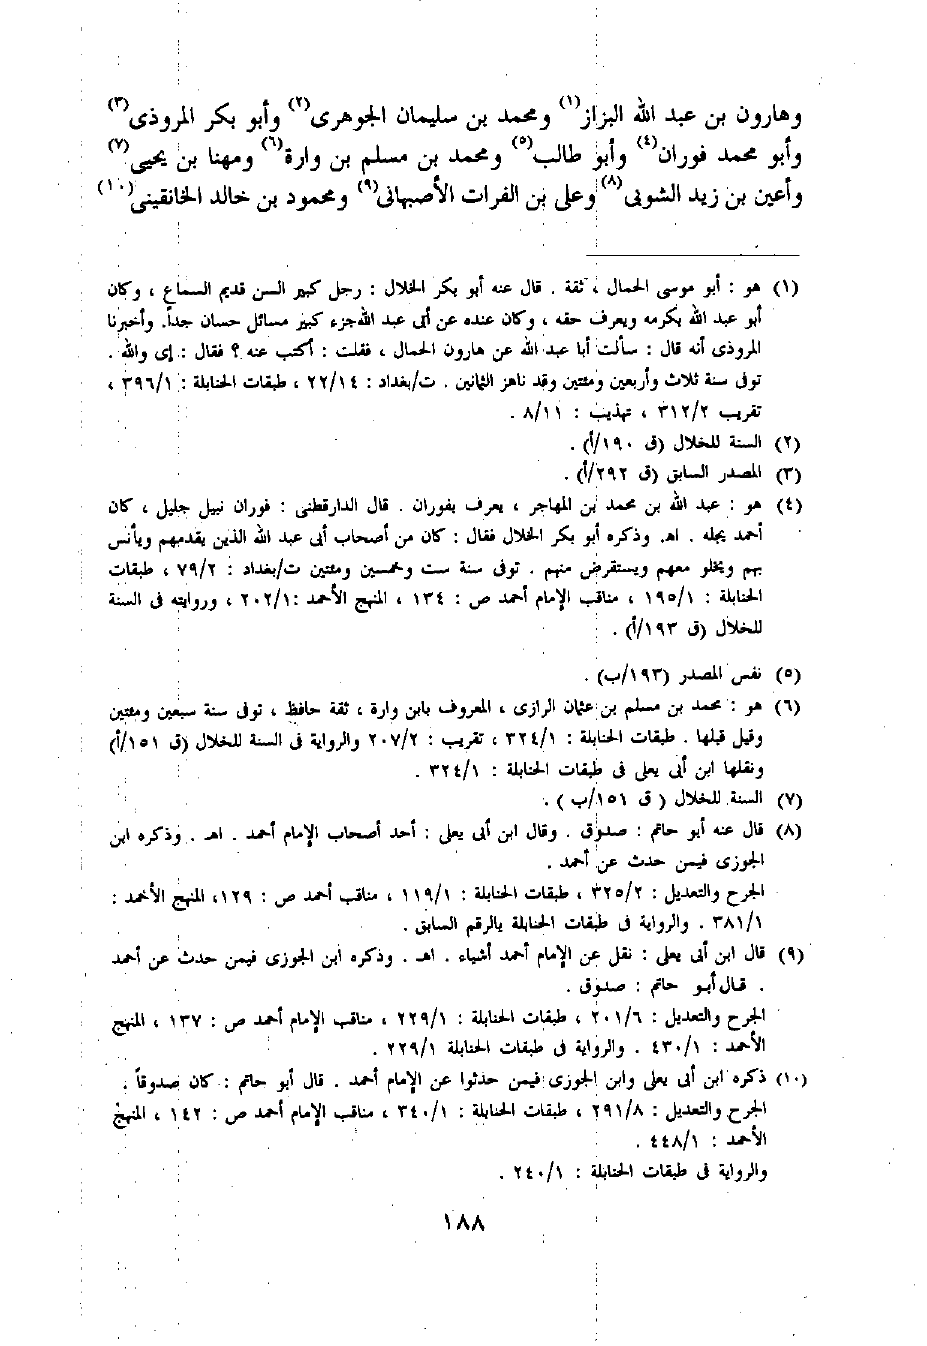 وهارون بن عبد الله البزاز(١) ومحمد بن سليمان الجوهرى(٢) وأبو بكر المروذى(٣)
وأبو محمد فوران(٤) وأبو طالب(٥) ومحمد بن مسلم بن وارة(٦) ومهنا بن يحيى(٧)
وأعين بن زيد الشوبى(٨) وعلى بن الفرات الأصبهانى(٩) ومحمود بن خالد الخانقينى(١٠)
(١) هو : أبو موسى الحمال ، ثقة . قال عنه أبو بكر الخلال : رجل كبير السن قديم السماع ، وكان
أبو عبد الله يكرمه ويعرف حقه ، وكان عنده عن أبى عبد الله جزء كبير مسائل حسان جداً. وأخبرنا
المروذى أنه قال : سألت أبا عبد الله عن هارون الحمال ، فقلت : أكتب عنه ؟ فقال : إى والله .
توفى سنة ثلاث وأربعين ومئتين وقد ناهز الثمانين . ت/بغداد : ٢٢/١٤ ، طبقات الحنابلة : ٣٩٦/١ ،
تقريب ٣١٢/٢ ، تهذيب : ٨/١١ .
(٢) السنة للخلال (ق ١٩٠/أ) .
(٣) المصدر السابق (ق ٢٩٢/أ) .
(٤) هو : عبد الله بن محمد بن المهاجر ، يعرف بفوران . قال الدارقطنى : فوران نبيل جليل ، كان
أحمد يجله . اهـ. وذكره أبو بكر الخلال فقال : كان من أصحاب أبى عبد الله الذين يقدمهم ويأنس
بهم ويخلو معهم ويستقرض منهم . توفى سنة ست وخمسين ومئتين ت/بغداد : ٧٩/٢ ، طبقات
الحنابلة : ١٩٥/١ ، مناقب الإمام أحمد ص : ١٣٤ ، المنهج الأحمد :٢٠٢/١ ، وروايته فى السنة
للخلال (ق ١٩٣/أ) .
(٥) نفس المصدر (١٩٣/ب) .
(٦) هو : محمد بن مسلم بن عثمان الرازى ، المعروف بابن وارة ، ثقة حافظ ، توفى سنة سبعين ومئتين
وقيل قبلها . طبقات الحنابلة : ٣٢٤/١ ، تقريب : ٢٠٧/٢ والرواية فى السنة للخلال (ق ١٥١/أ)
ونقلها ابن أبى يعلى فى طبقات الحنابلة : ٣٢٤/١ .
(٧) السنة للخلال ( ق ١٥١/ب ) .
(٨) قال عنه أبو حاتم : صدوق . وقال ابن أبى يعلى : أحد أصحاب الإمام أحمد . اهـ . وذكره ابن
الجوزى فيمن حدث عن أحمد .
الجرح والتعديل : ٣٢٥/٢ ، طبقات الحنابلة : ١١٩/١ ، مناقب أحمد ص : ١٢٩، المنهج الأحمد :
٣٨١/١ . والرواية فى طبقات الحنابلة بالرقم السابق .
(٩) قال ابن أبى يعلى : نقل عن الإمام أحمد أشياء . اهـ . وذكره ابن الجوزى فيمن حدث عن أحمد
. قال أبو حاتم : صدوق .
الجرح والتعديل : ٢٠١/٦ ، طبقات الحنابلة : ٢٢٩/١ ، مناقب الإمام أحمد ص : ١٣٧ ، المنهج
الأحمد : ٤٣٠/١ . والرواية فى طبقات الحنابلة ٢٢٩/١ .
(١٠) ذكره ابن أبى يعلى وابن الجوزى فيمن حدثوا عن الإمام أحمد . قال أبو حاتم : كان صدوقاً .
الجرح والتعديل : ٢٩١/٨ ، طبقات الحنابلة : ٣٤٠/١ ، مناقب الإمام أحمد ص : ١٤٢ ، المنهج
الأحمد : ٤٤٨/١ .
والرواية فى طبقات الحنابلة : ٢٤٠/١ .
١٨٨